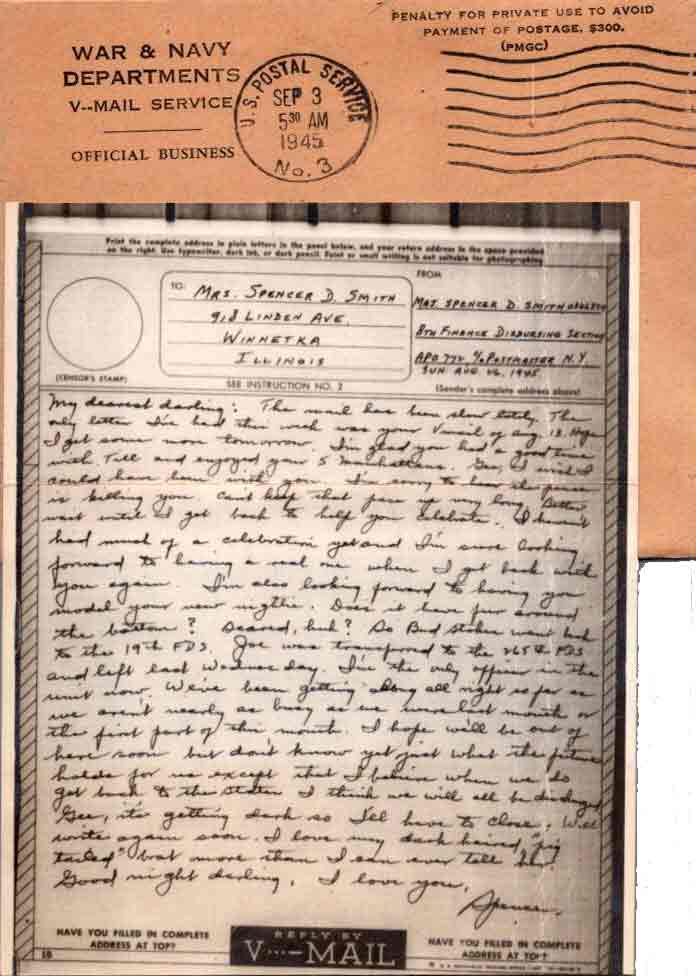 PENALTY FOR PRIVATE USE TO AVOID
PAYMENT OF POSTAGE, $300.
(PMGC)
WAR & NAVY
DEPARTMENTS
V--MAIL SERVICE
OFFICIAL BUSINESS
U.S. POSTAL SERVICE
SEP 3
5 30 AM
1945
No. 3
Print the complete address in plain letters in the panel below, and your return address in the space provided
on the right. Use typewriter, dark ink, or dark pencil. Faint or small writing is not suitable for photographing.
TO:
MRS. SPENCER D. SMITH
918 LINDEN AVE.
WINNETKA
ILLINOIS
FROM
MAJ. SPENCER D. SMITH
8TH FINANCE DISBURSING SECTION
APO 772 % POSTMASTER N.Y.
SUN. AUG. 26, 1945
(CENSOR'S STAMP)
SEE INSTRUCTION NO. 2
(Sender's complete address above)
My dearest darling: The mail has been slow lately. The
only letter I've had this week was your Vmail of Aug. 13. Hope
I get some more tomorrow. I'm glad you had a good time
with and enjoyed your 5 Manhattans. Gee, I wish I
could have been with you. I'm sorry to hear the peace
is killing you. Can't keep that pace up very long. Better
wait until I get back to help you celebrate. I haven't
had much of a celebration yet and I'm sure looking
forward to having a real one when I get back with
you again. I'm also looking forward to having you
model your new nightie. Does it have fur around
the bottom? Scared, huh? So Bud went back
to the 19th FDS. Joe was transferred to the 265th FDS
and left last Wednesday. I'm the only officer in the
unit now. We've been getting along all right so far as
we aren't nearly as busy as we were last month or
the first part of this month. I hope we'll be out of
here soon but don't know yet just what the future
holds for us except that I believe when we do
get back to the states I think we will all be discharged
Gee, it's getting dark so I'll have to close. Will
write again soon. I love my dark haired, "pig
tailed" brat more than I can ever tell her.
Good night darling, I love you,
Spencer.
HAVE YOU FILLED IN COMPLETE
ADDRESS AT TOP?
REPLY BY
V···—MAIL
HAVE YOU FILLED IN COMPLETE
ADDRESS AT TOP?